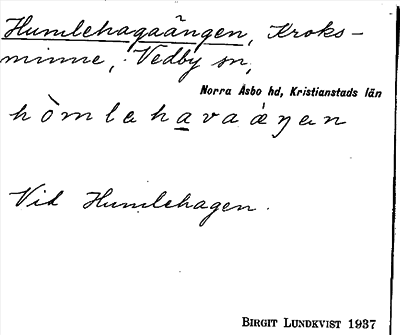 Humlehagaängen, Kroks-
minne, Vedby sn,
Norra Åsbo hd, Kristianstads län
hòmlehavaèŋen
Vid Humlehagen.
BIRGIT LUNDKVIST 1937